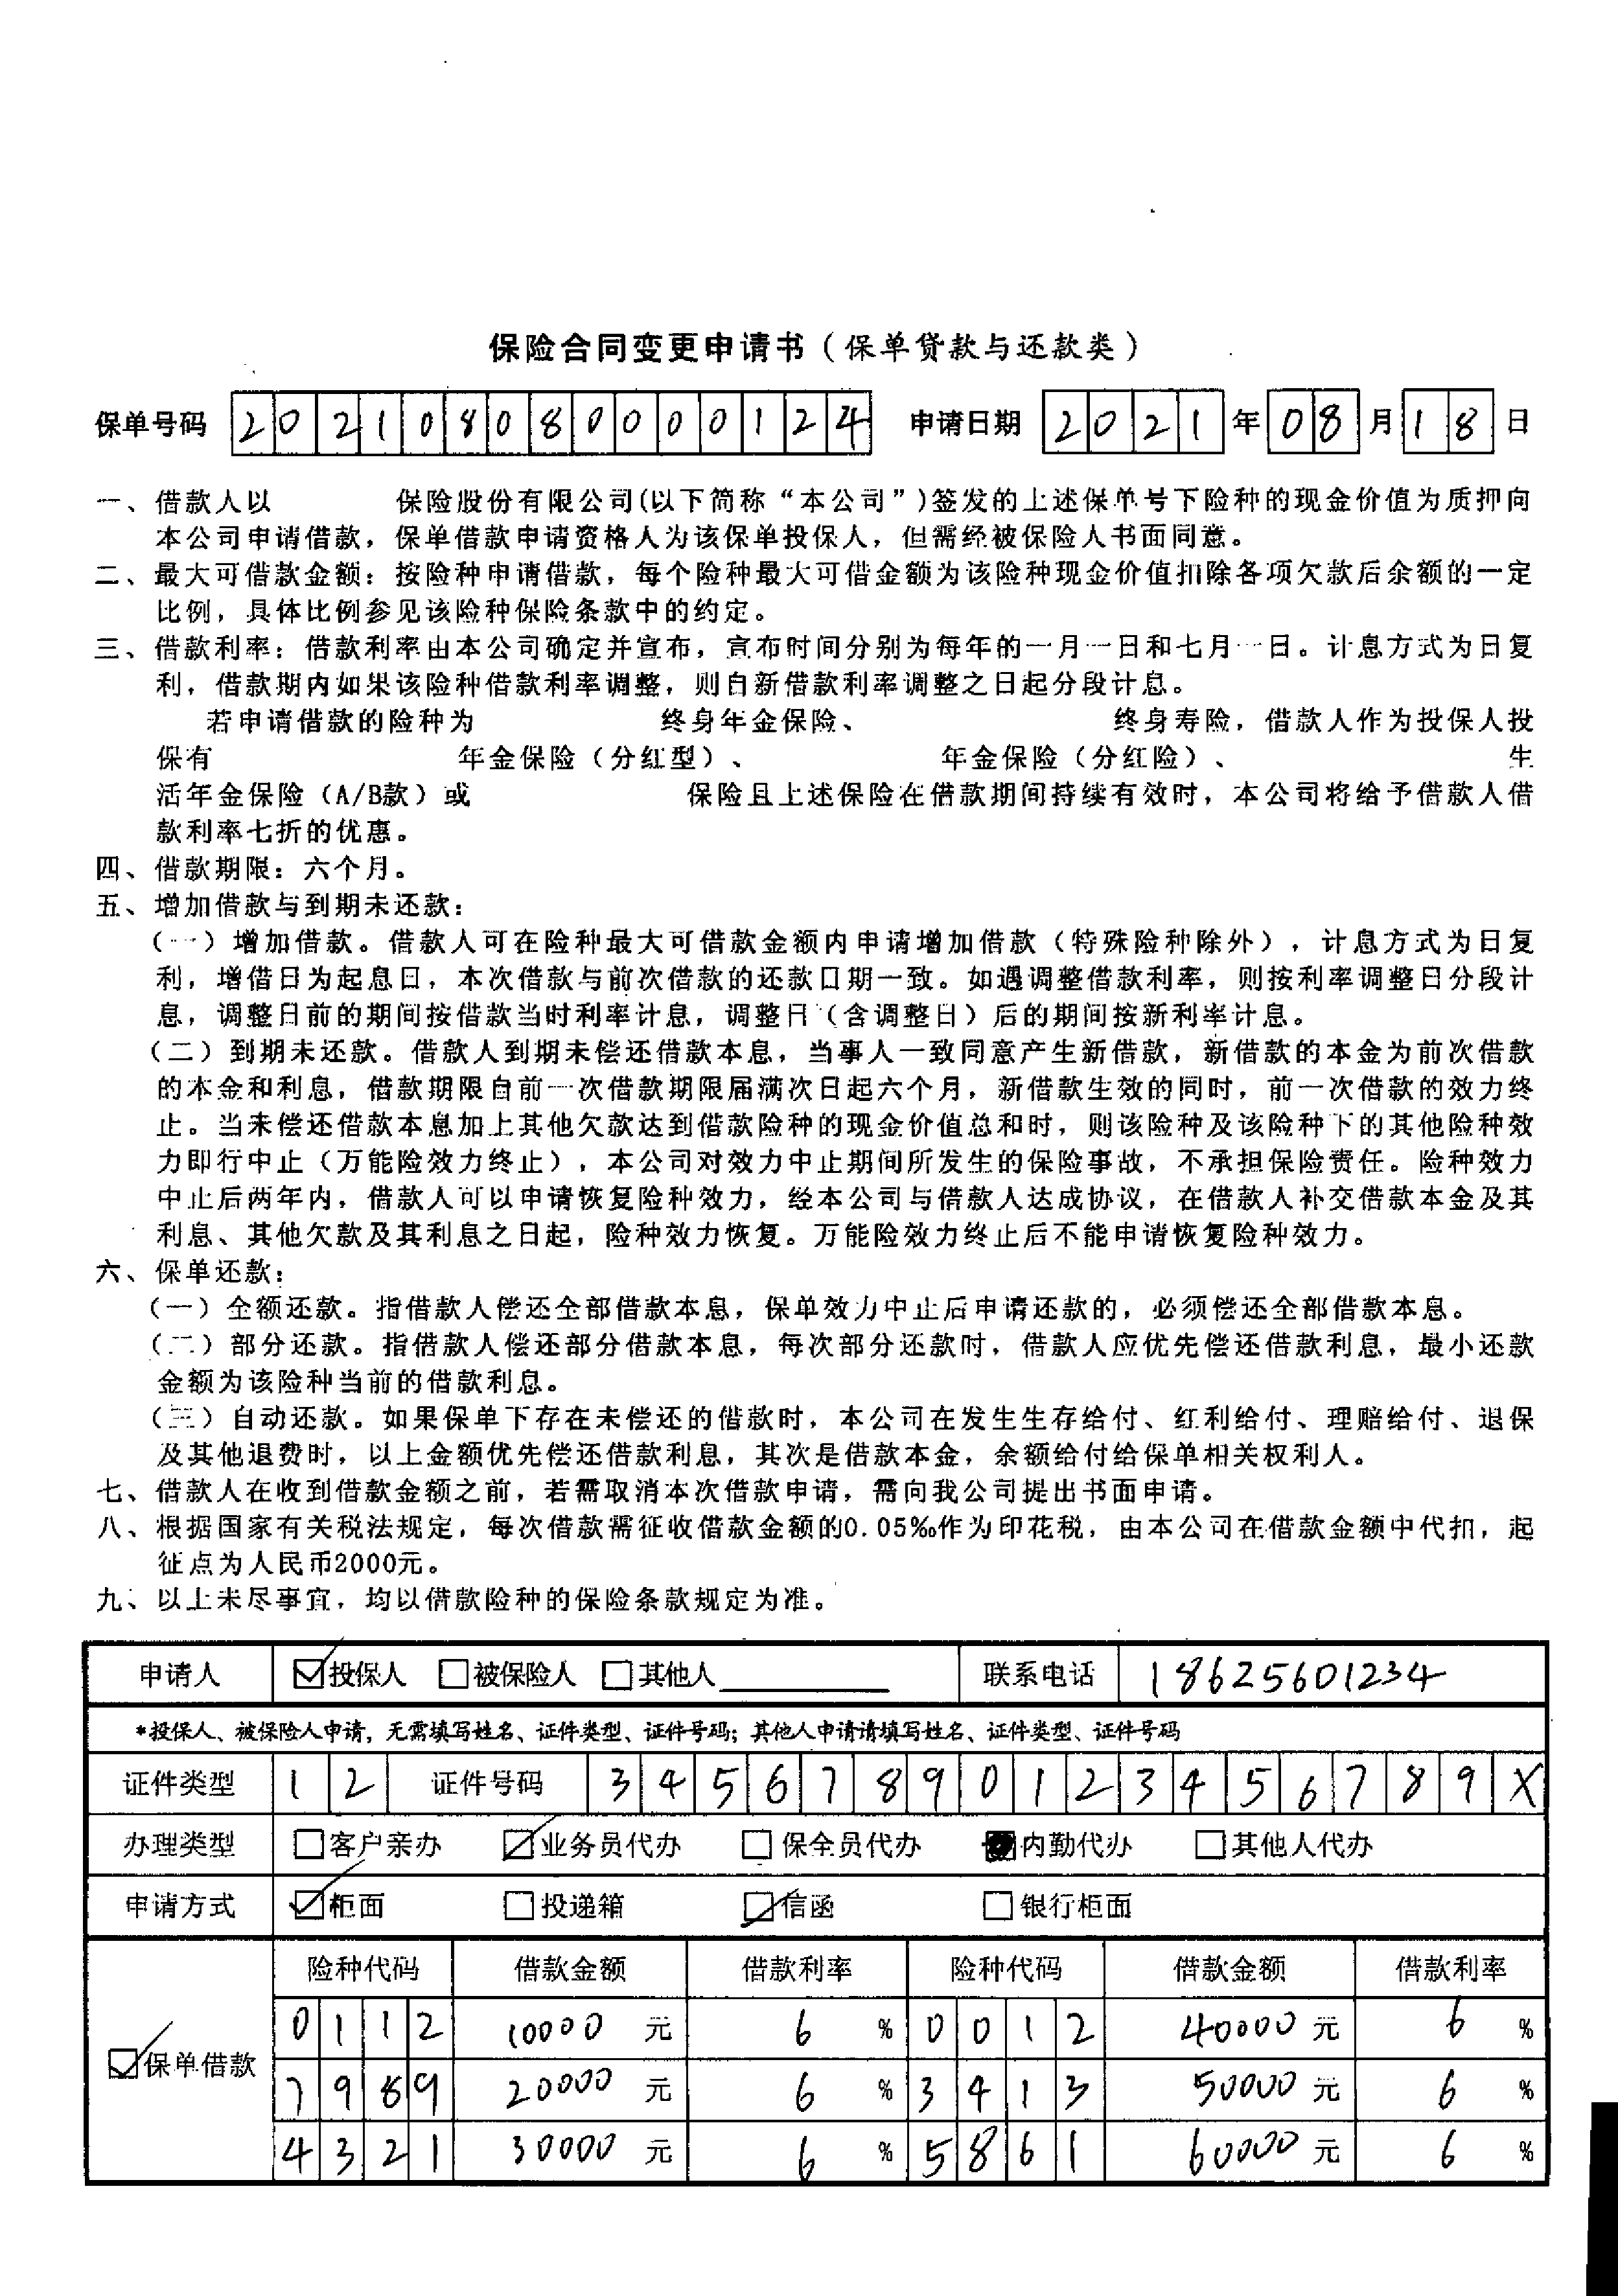 保险合同变更申请书（保单贷款与还款类）
保单号码 202108080000124 申请日期 2021年08月18日
一、借款人以 保险股份有限公司(以下简称“本公司”)签发的上述保单号下险种的现金价值为质押向
本公司申请借款，保单借款申请资格人为该保单投保人，但需经被保险人书面同意。
二、最大可借款金额：按险种申请借款，每个险种最大可借金额为该险种现金价值扣除各项欠款后余额的一定
比例，具体比例参见该险种保险条款中的约定。
三、借款利率：借款利率由本公司确定并宣布，宣布时间分别为每年的一月一日和七月一日。计息方式为日复
利，借款期内如果该险种借款利率调整，则自新借款利率调整之日起分段计息。
若申请借款的险种为 终身年金保险、 终身寿险，借款人作为投保人投
保有 年金保险（分红型）、 年金保险（分红险）、 生
活年金保险（A/B款）或 保险且上述保险在借款期间持续有效时，本公司将给予借款人借
款利率七折的优惠。
四、借款期限：六个月。
五、增加借款与到期未还款：
（一）增加借款。借款人可在险种最大可借款金额内申请增加借款（特殊险种除外），计息方式为日复
利，增借日为起息日，本次借款与前次借款的还款日期一致。如遇调整借款利率，则按利率调整日分段计
息，调整日前的期间按借款当时利率计息，调整日（含调整日）后的期间按新利率计息。
（二）到期未还款。借款人到期未偿还借款本息，当事人一致同意产生新借款，新借款的本金为前次借款
的本金和利息，借款期限自前一次借款期限届满次日起六个月，新借款生效的同时，前一次借款的效力终
止。当未偿还借款本息加上其他欠款达到借款险种的现金价值总和时，则该险种及该险种下的其他险种效
力即行中止（万能险效力终止），本公司对效力中止期间所发生的保险事故，不承担保险责任。险种效力
中止后两年内，借款人可以申请恢复险种效力，经本公司与借款人达成协议，在借款人补交借款本金及其
利息、其他欠款及其利息之日起，险种效力恢复。万能险效力终止后不能申请恢复险种效力。
六、保单还款：
（一）全额还款。指借款人偿还全部借款本息，保单效力中止后申请还款的，必须偿还全部借款本息。
（二）部分还款。指借款人偿还部分借款本息，每次部分还款时，借款人应优先偿还借款利息，最小还款
金额为该险种当前的借款利息。
（三）自动还款。如果保单下存在未偿还的借款时，本公司在发生生存给付、红利给付、理赔给付、退保
及其他退费时，以上金额优先偿还借款利息，其次是借款本金，余额给付给保单相关权利人。
七、借款人在收到借款金额之前，若需取消本次借款申请，需向我公司提出书面申请。
八、根据国家有关税法规定，每次借款需征收借款金额的0.05‰作为印花税，由本公司在借款金额中代扣，起
征点为人民币2000元。
九、以上未尽事宜，均以借款险种的保险条款规定为准。
申请人 ☑投保人 □被保险人 □其他人 联系电话 18625601234
*投保人、被保险人申请，无需填写姓名、证件类型、证件号码；其他人申请请填写姓名、证件类型、证件号码
证件类型 12 证件号码 34567890123456789X
办理类型 □客户亲办 ☑业务员代办 □保全员代办 ■内勤代办 □其他人代办
申请方式 ☑柜面 □投递箱 ☑信函 □银行柜面
险种代码 借款金额 借款利率 险种代码 借款金额 借款利率
0112 10000 元 6 % 0012 40000 元 6 %
☑保单借款
7989 20000 元 6 % 3413 50000 元 6 %
4321 30000 元 6 % 5861 60000 元 6 %